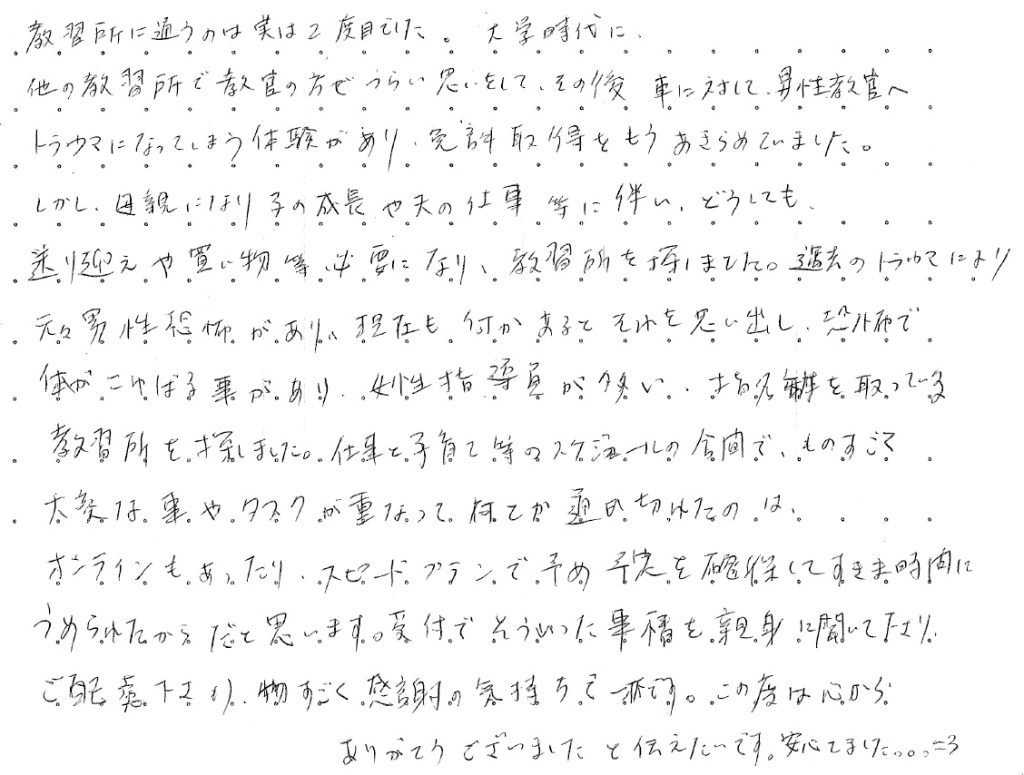 教習所に通うのは実は2度目でした。大学時代に、
他の教習所で教官の方でつらい思いをして、その後 車に対して、男性教官へ
トラウマになってしまう体験があり、免許取得をもうあきらめていました。
しかし、母親になり子の成長や夫の仕事等に伴い、どうしても、
送り迎えや買い物等、必要になり、教習所を探しました。過去のトラウマにより
元々男性恐怖があり、現在も何かあるとそれを思い出し、恐怖で
体がこわばる事があり、女性指導員が多い、指名制を取っている
教習所を探しました。仕事と子育て等のスケジュールの合間で、ものすごく
大変な事やタスクが重なって、何とか通い切れたのは、
オンラインもあったり、スピードプランで予め予定を確保してすきま時間に
うめられたからだと思います。受付でそういった事情を親身に聞いて下さり、
ご配慮下さり、物すごく感謝の気持ちで一杯です。この度は心から
ありがとうございましたと伝えたいです。安心しました。。。=3